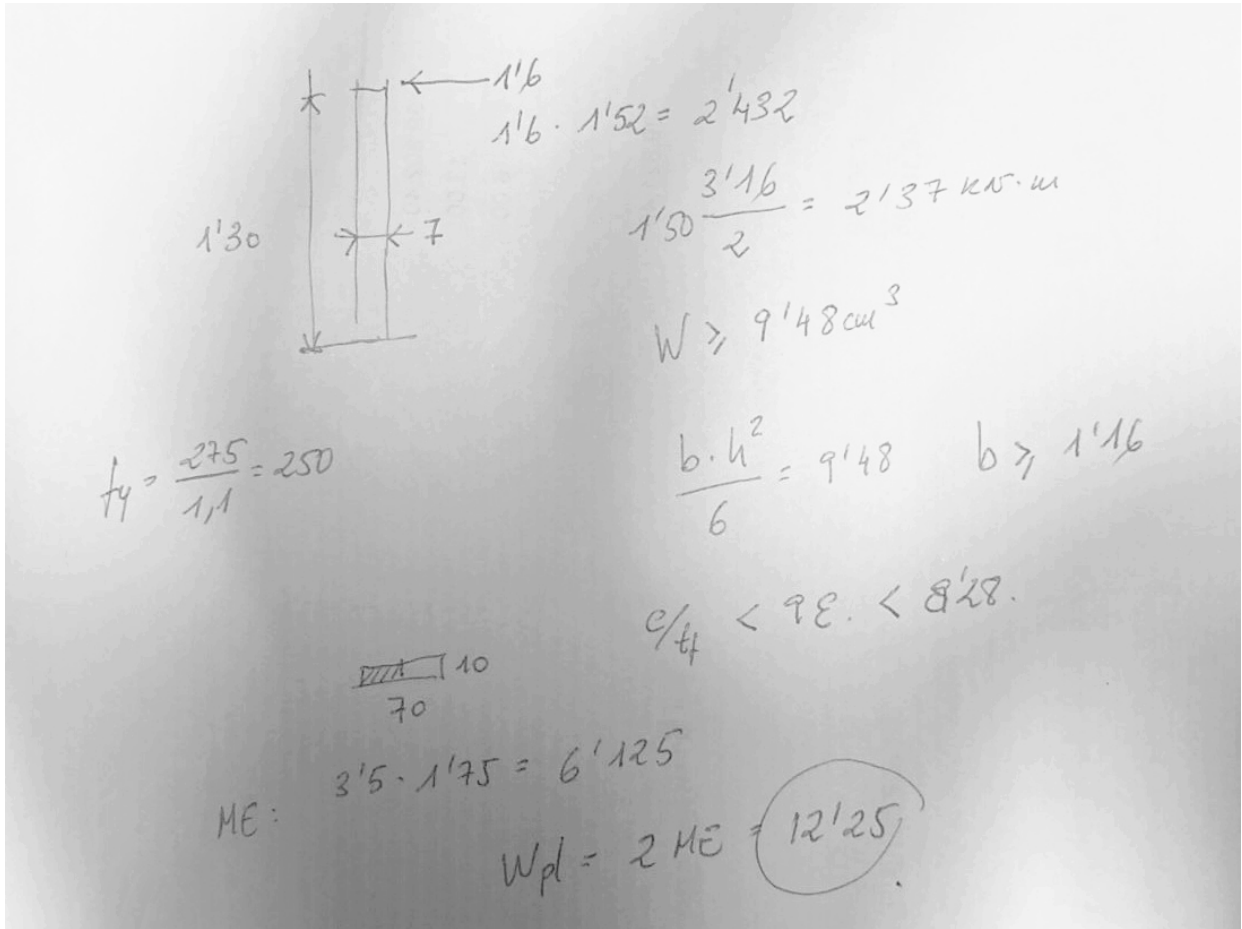 1'6
1'6 · 1'52 = 2'432
1'30
7
1'50 3'16/2 = 2'37 kN·m
W ≥ 9'48 cm³
fy = 275/1,1 = 250
b·h²/6 = 9'48 b ≥ 1'16
c/tf < 9ε. < 8'28.
10
70
ME: 3'5 · 1'75 = 6'125
Wpl = 2 ME = 12'25